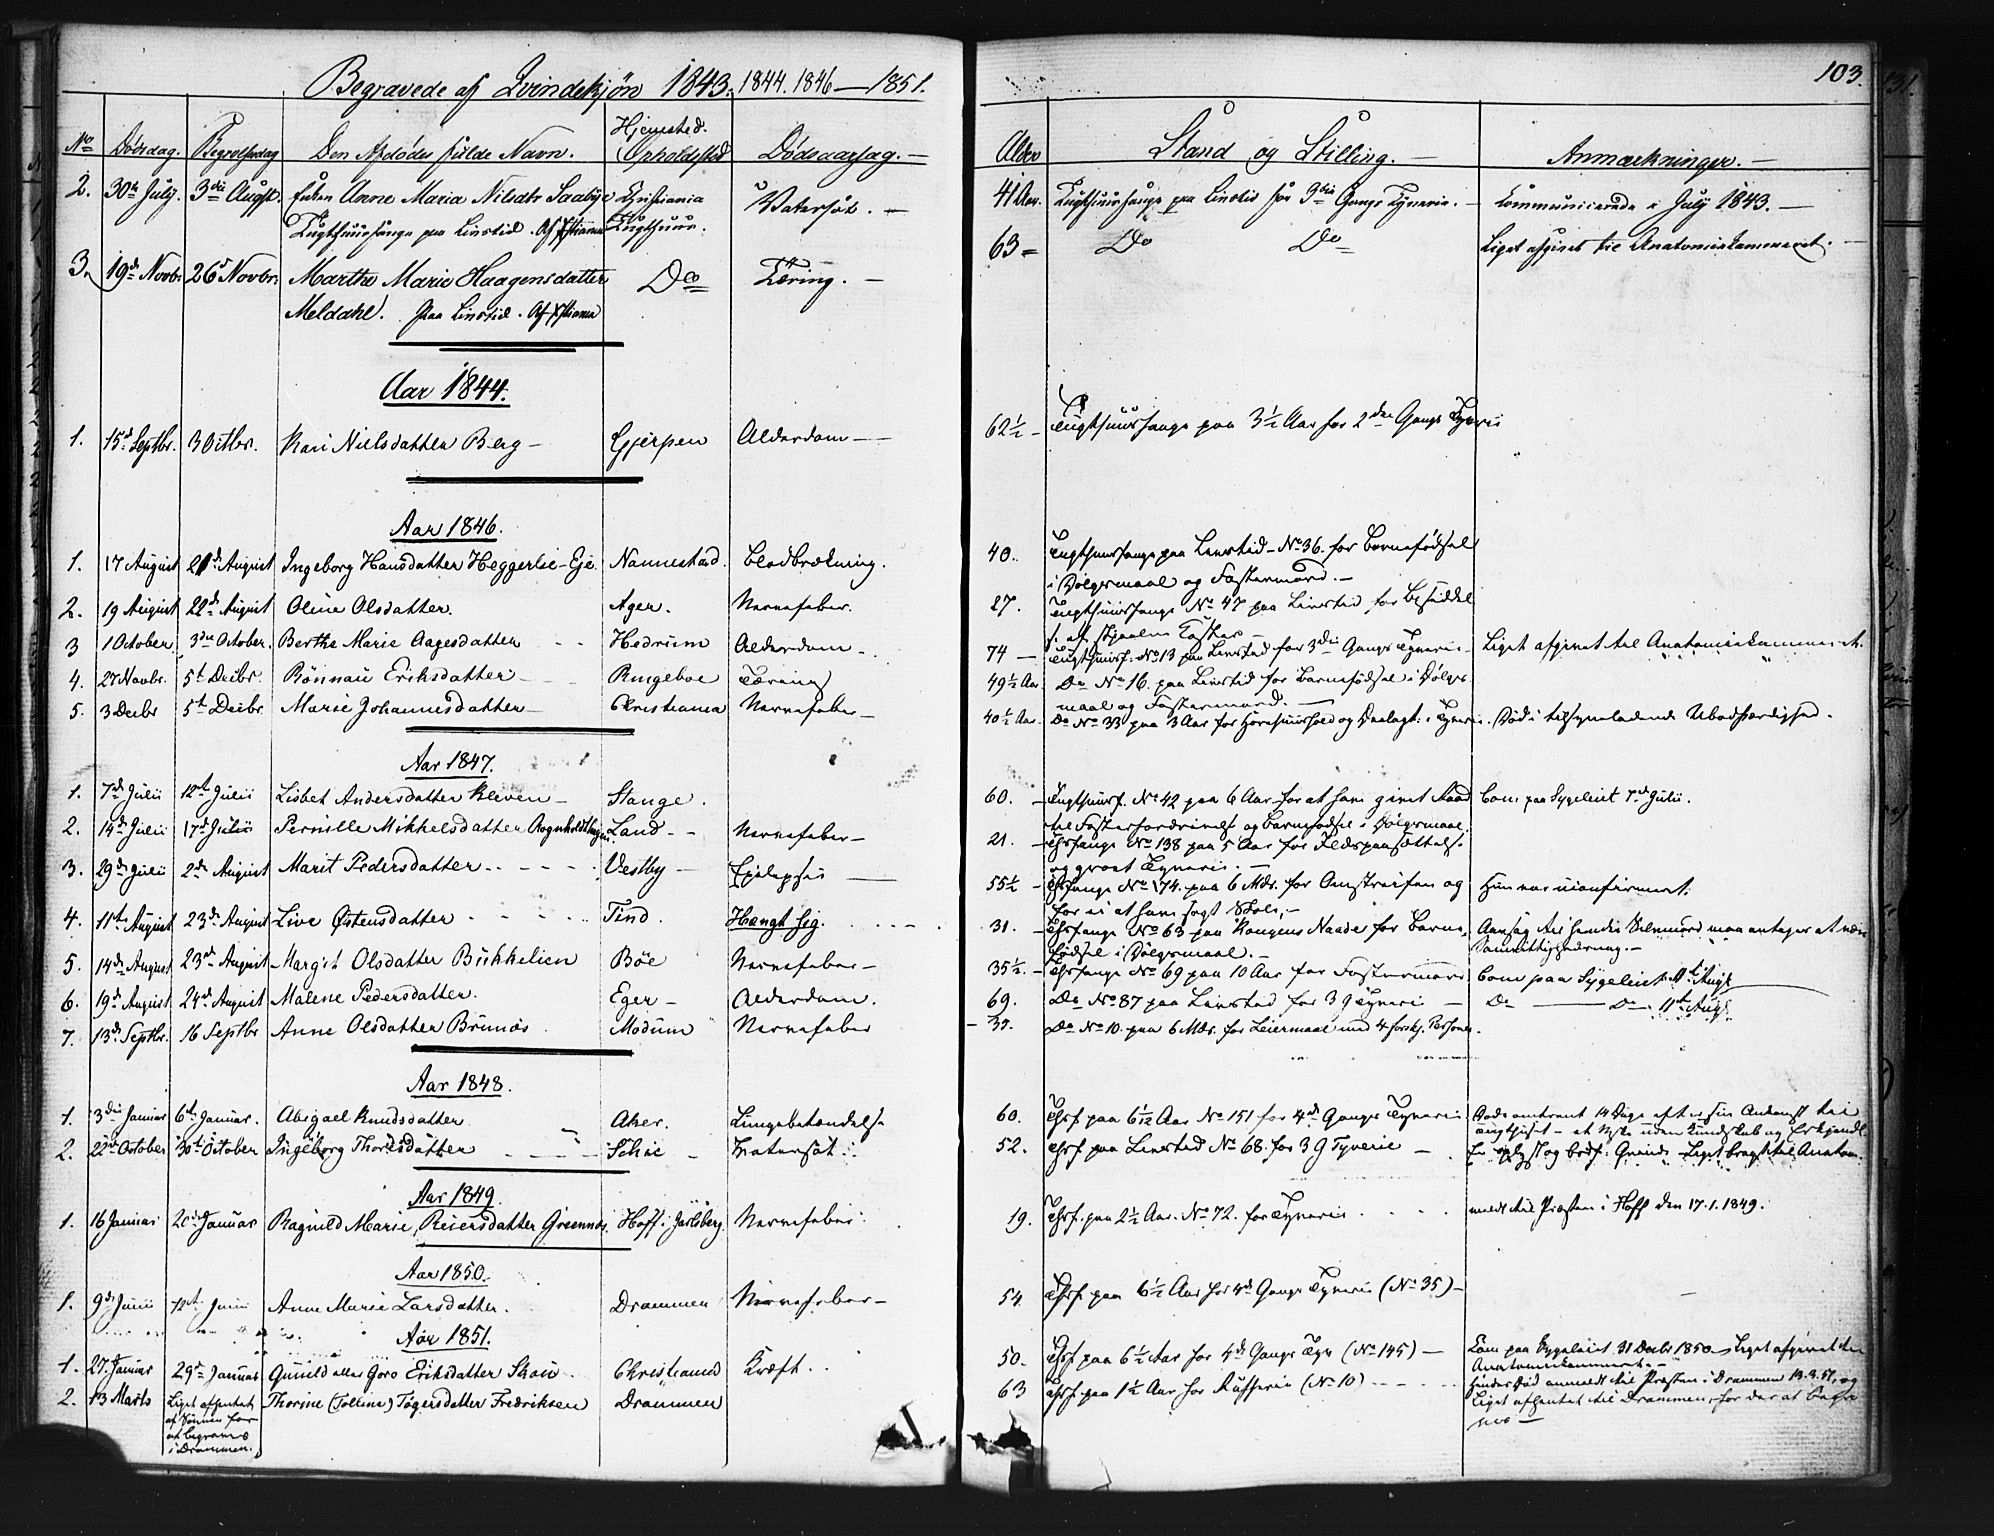 Begravede af Qvindekjøn 1843. 1844. 1846 — 1851.
103.
131.
No Dødsdag. Begravelsesdag Den Afdødes fulde Navn. Hjemsted. (Opholdssted Dødsaarsag. —
Alder Stand og Stilling. — Anmærkninger. —
2. 30te July. 3die August. Enken Anne Maria Nilsdtr Saabye Christiania Vatersot. —
Tugthuusfange paa Livstid. Af Xstiania Tugthuus.
41 Aar. Tugthuusfange paa Livstid for 3die Gangs Tyverie. — Communicerede i July 1843. —
3. 19de Novbr. 26d Novbr. Marthe Marie Haagensdatter Do Tæring. —
Meldahl. paa Livstid. Af Xstiania
63 = Do Do Liget afgivet til Anatomiekammeret. —
Aar 1844.
1. 15d Septbr. 3 Octbr. Kari Nielsdatter Berg — Gjerpen Alderdom —
62½ — Tugthuusfange paa 3½ Aar for 2den Gangs Tyverie
Aar 1846.
1. 17 August 21de August Ingeborg Hansdatter Heggerlie-Eje. Nannestad. Blodbrækning.
40. Tugthuusfange paa Livstid — No 36. for Barnefødsel
i Dølgsmaal og Fostermord. —
2. 19 August 22de August Oline Olsdatter. Ager. Nervefeber.
27. Tugthuusfange No 47 paa Livstid for
3 1 October. 3die October. Berthe Marie Aagesdatter Hedrum Alderdom —
74 — Tugthuusf. No 13 paa Livstid for 3die Gangs Tyverie — Liget afgivet til Anatomiekammeret.
4. 27 Novbr. 5t Decbr. Rønnau Eriksdatter — Ringeboe Tæring
49½ Aar Do No 16. paa Livstid for Barnefødsel i Dølgs-
maal og Fostermord. —
5. 3 Decbr 5t Decbr. Marie Johannesdatter — Christiania Nervefeber —
40½ Aar. Do No 33 paa 3 Aar for Horehuushold og Tyverie. Død i tilsyneladende Ubodfærdighed.
Aar 1847.
1. 7de Julii 12te Julii Lisbet Andersdatter Kleven — Stange.
60. — Tugthuusf. No 42 paa 6 Aar for at have givet Raad Com. paa Sygeleiet 7de Julii.
til Fosterfordrivelse og Barnefødsel i Dølgsmaal.
2. 14de Julii 17d Julii Pernille Mikkelsdatter Rognholdthagen. Land — Nervefeber —
21. — Thsfange No 138 paa 5 Aar for Ildspaasættelse
og grovt Tyverie. —
3. 29de Julii 2de August Marit Pedersdatter Vestby — Epilepsie —
55½ — Thsfange No 174. paa 6 Mdr. for Omstreifen og Hun var uconfirmeret.
for ei at have søgt Skole. —
4. 11te August 23de August Live Østensdatter Tind. Hængt sig.
31. — Thsfange No 63 paa Kongens Naade for Barne- Aarsag til hendes Selvmord maa antages at være
fødsel i Dølgsmaal. — Samvittighedsnag. —
5. 14de August 23de August Margit Olsdatter Bukkelien Bøe Nervefeber —
35½. — Thsfange No 69 paa 10 Aar for Fostermord Com paa Sygeleiet 9te Aug.
6. 19d August 24de August Malene Pedersdatter. Eger — Alderdom.
69. Do No 87 paa Livstid for 3 G Tyverie — Do — Do 11te Aug.
7. 13de Septbr. 16 Septbr Anne Olsdatter Brunæs Modum Nervefeber
— 35. Do No 10. paa 6 Mdr. for Leiermaal med 4 forskj. Personer.
Aar 1848.
1. 3die Januar 6te Januar. Abigael Knudsdatter Aker. Lungebetændelse
60. Thsf paa 6½ Aar No 151 for 4de Gangs Tyverie Døde omtrent 14 Dage efter sin Ankomst til
Tugthuset — uden Kundskab og
2. 22de October 30te October Ingeborg Thoresdatter Schie — Vatersot.
52. Thsf paa Livstid No 68. for 3 G Tyverie — En oplyst og bodf. Qvinde — Liget bragt til Anatom.
Aar 1849.
1. 16 Januar 20de Januar Ragnild Marie, Reiersdatter Grevnæs. Hoff i Jarlsberg. Nervefeber.
19. Thsf. paa 2½ Aar. No 72. for Tyverie meldt til Præsten i Hoff den 17.1.1849.
Aar 1850.
1. 9de Junii 12te Junii Anne Marie Larsdatter. Drammen Nervefeber —
54 Thsf paa 6½ Aar for 4de Gangs Tyverie (No 35) —
Aar 1851.
1. 27. Januar 29de Januar Gunild eller Goro Eriksdatter Skau Christiania Kræft.
50. Thsf paa 6½ Aar for 4de Gangs Tyv (No 145) — Com paa Sygeleiet 31 Decbr 1850. — Liget afgivet til
Anatomiekammeret. —
2. 13 Marts Liget afhentet Thorine (Tolline) Tøgersdatter Fredriksen Drammen
af Sønnen for
at begraves
i Drammen.
63 Thsf paa 1½ Aar for Rufferie (No 10) — hendes Død anmeldt til Præsten i Drammen 13.3.51, og
Liget afhentet til Drammen, for der at begra-
ves —